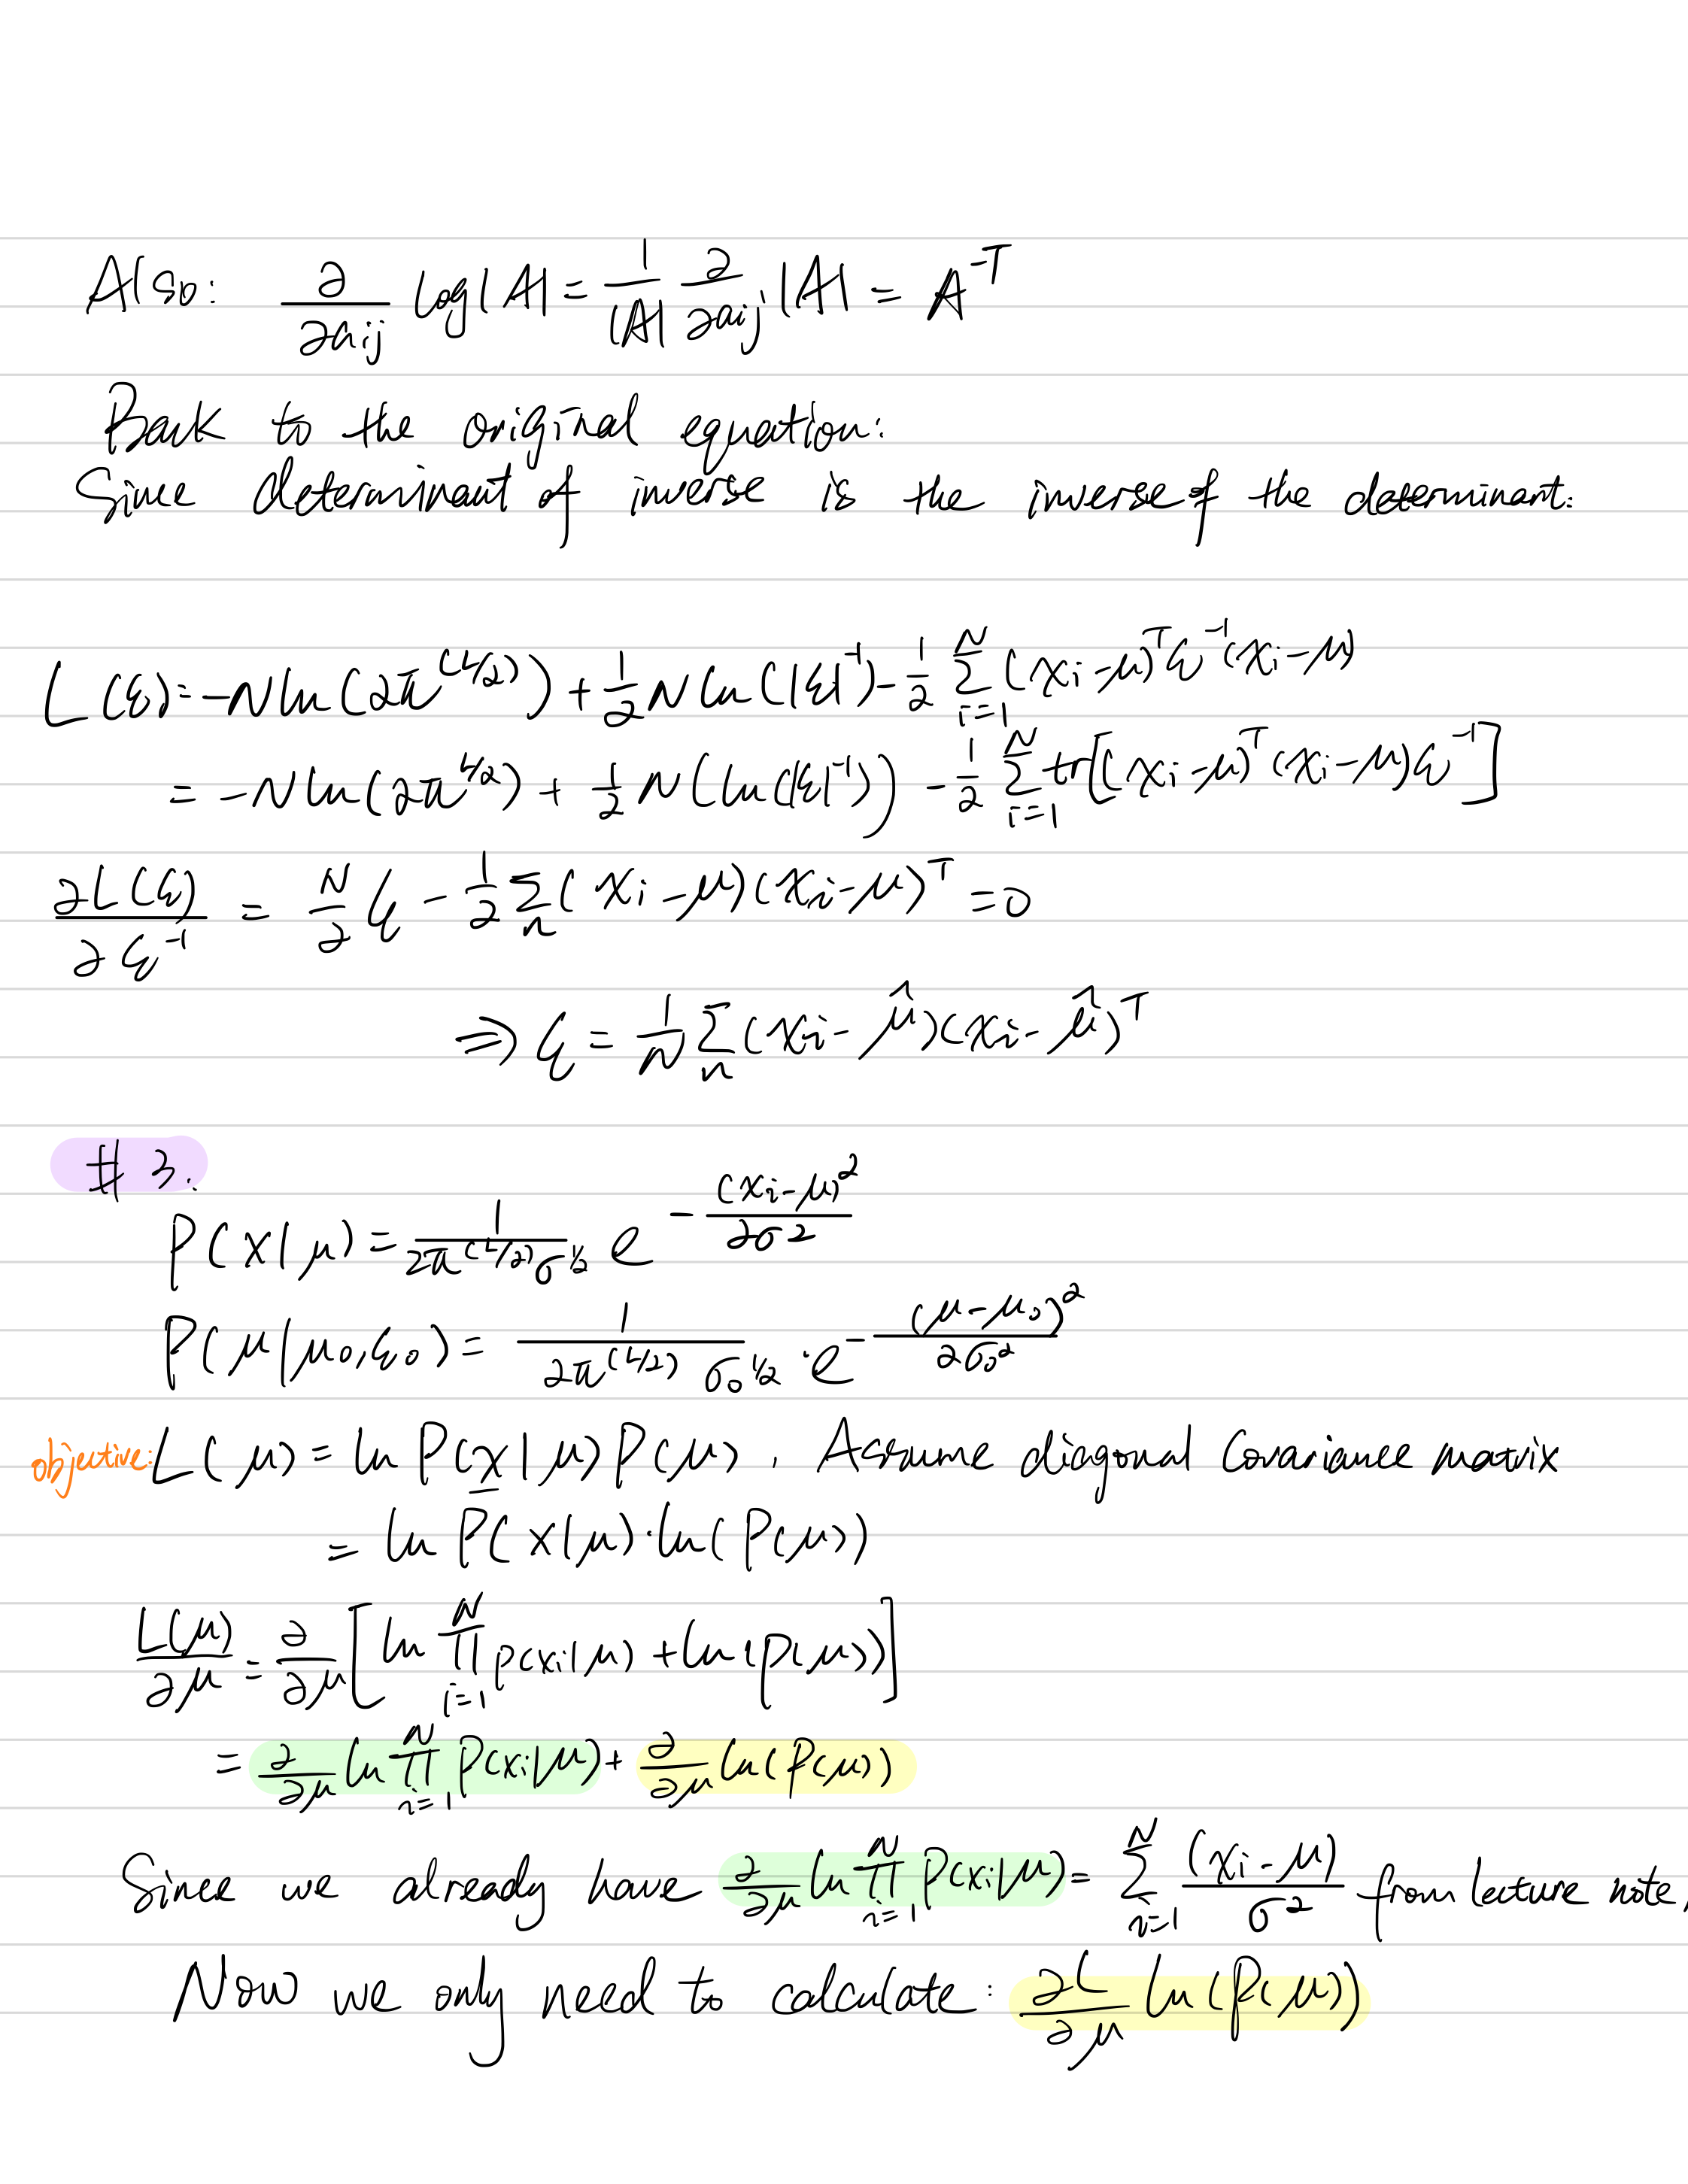 Also: ∂/∂aij log|A| = 1/|A| ∂/∂aij |A| = A^-T
Back to the original equation:
Since determinant of inverse is the inverse of the determinant:
L(Σ) = -N ln(2π^(L/2)) + 1/2 N ln(|Σ|^-1) - 1/2 Σ_{i=1}^N (xi-μ)^T Σ^-1 (xi-μ)
= -N ln(2π^L/2) + 1/2 N (ln(|Σ|^-1)) - 1/2 Σ_{i=1}^N tr[(xi-μ)^T (xi-μ) Σ^-1]
∂L(Σ)/∂Σ^-1 = N/2 Σ - 1/2 Σ_n (xi-μ)(xi-μ)^T = 0
⇒ Σ = 1/N Σ_n (xi-μ̂)(xi-μ̂)^T
# 3.
P(x|μ) = 1/(2π^(L/2) σ^1/2) e^-(xi-μ)^2/2σ^2
P(μ|μ0,Σ0) = 1/(2π^(L/2) σ0^1/2) · e^-(μ-μ0)^2/2σ0^2
objective: L(μ) = ln P(x|μ) P(μ), Assume diagonal Covariance matrix
= ln P(x|μ) · ln(P(μ))
L(μ)/∂μ = ∂/∂μ [ln ∏_{i=1}^N p(xi|μ) + ln(p(μ))]
= ∂/∂μ ln ∏_{i=1}^N P(xi|μ) + ∂/∂μ ln(P(μ))
Since we already have ∂/∂μ ln ∏_{i=1}^N P(xi|μ) = Σ_{i=1}^N (xi-μ)/σ^2 from lecture note,
Now we only need to calculate: ∂L/∂μ ln(P(μ))